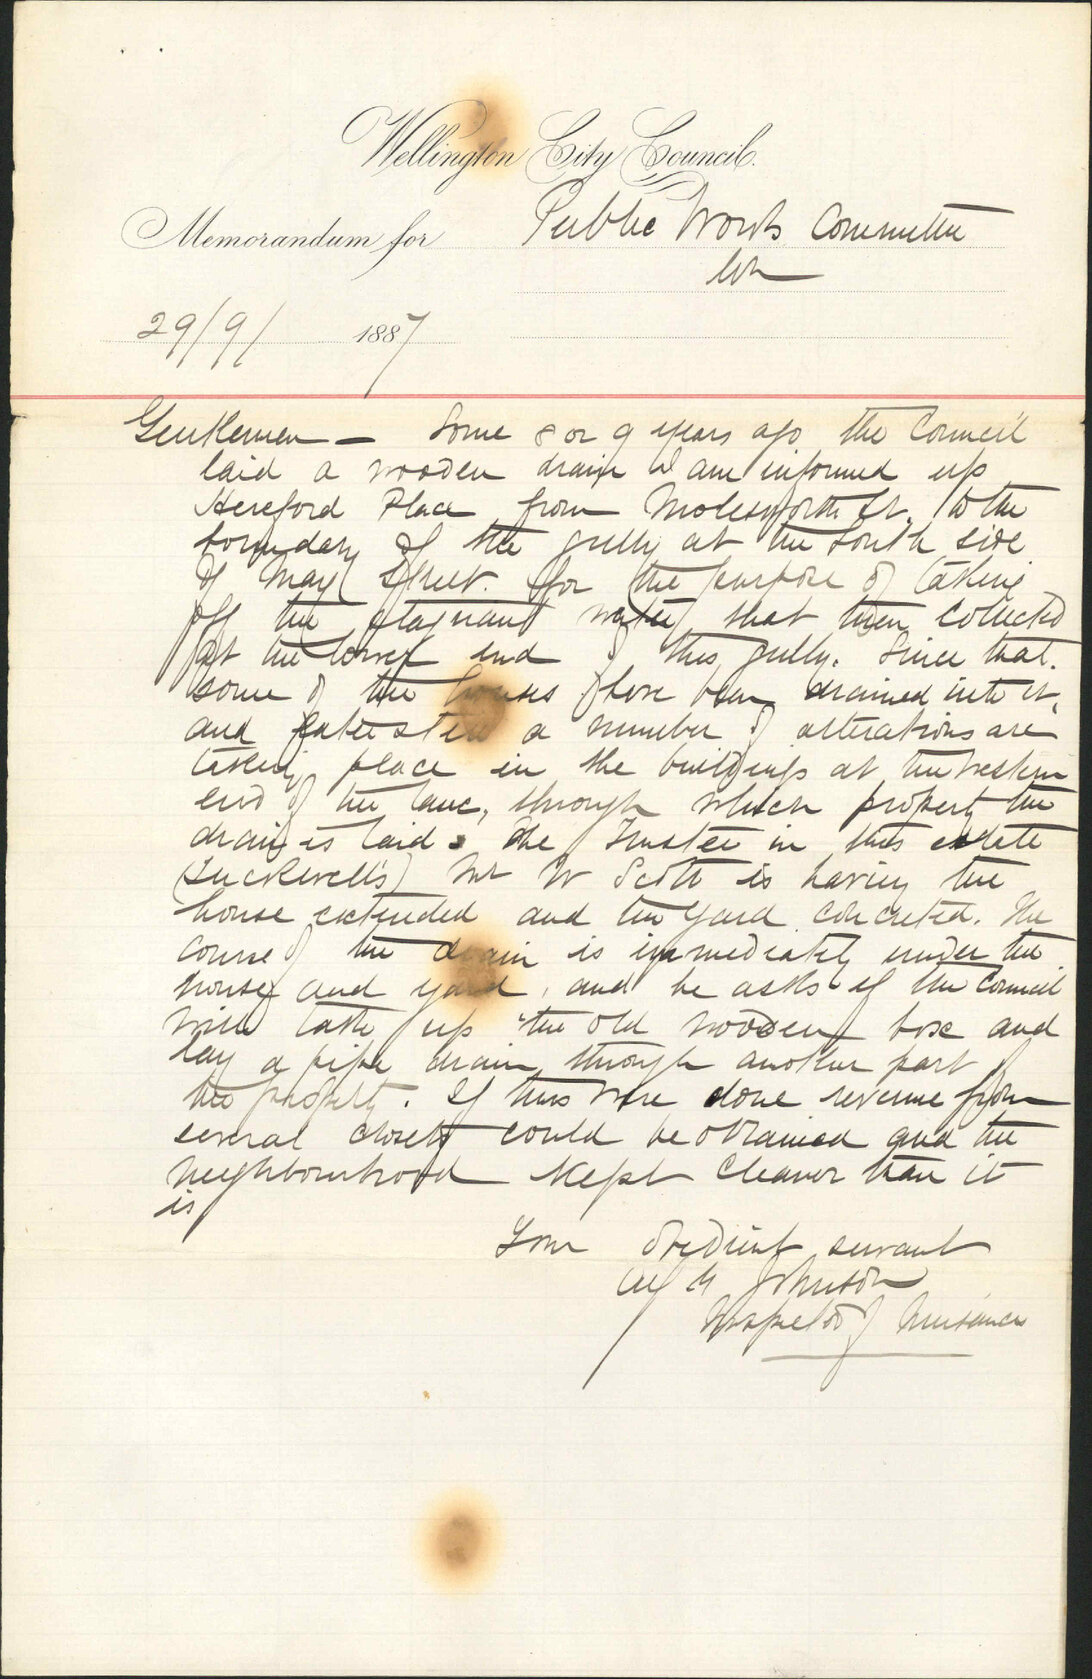 Wellington City Council.
Memorandum for Public Works Committee
29/9/ 1887
Gentlemen — Some 8 or 9 years ago the Council
laid a wooden drain I am informed up
Hereford Place from Molesworth St. to the
boundary of the gully at the South side
of May Street. for the purpose of taking
off the stagnant water that then collected
at the lower end of this gully. Since that.
some of the houses have been drained into it,
and later still a number of alterations are
taking place in the buildings at the western
end of the lane, through which property the
drain is laid. The Trustee in this estate
(Luckwell's) Mr W Scott is having the
house extended and the yard concreted. The
course of the drain is immediately under the
house and yard, and he asks if the Council
will take up the old wooden box and
lay a pipe drain through another part of
the property. If this were done revenue from
several closets could be obtained and the
neighbourhood kept cleaner than it
is
Your obedient servant
Johnson
Inspector of Nuisances